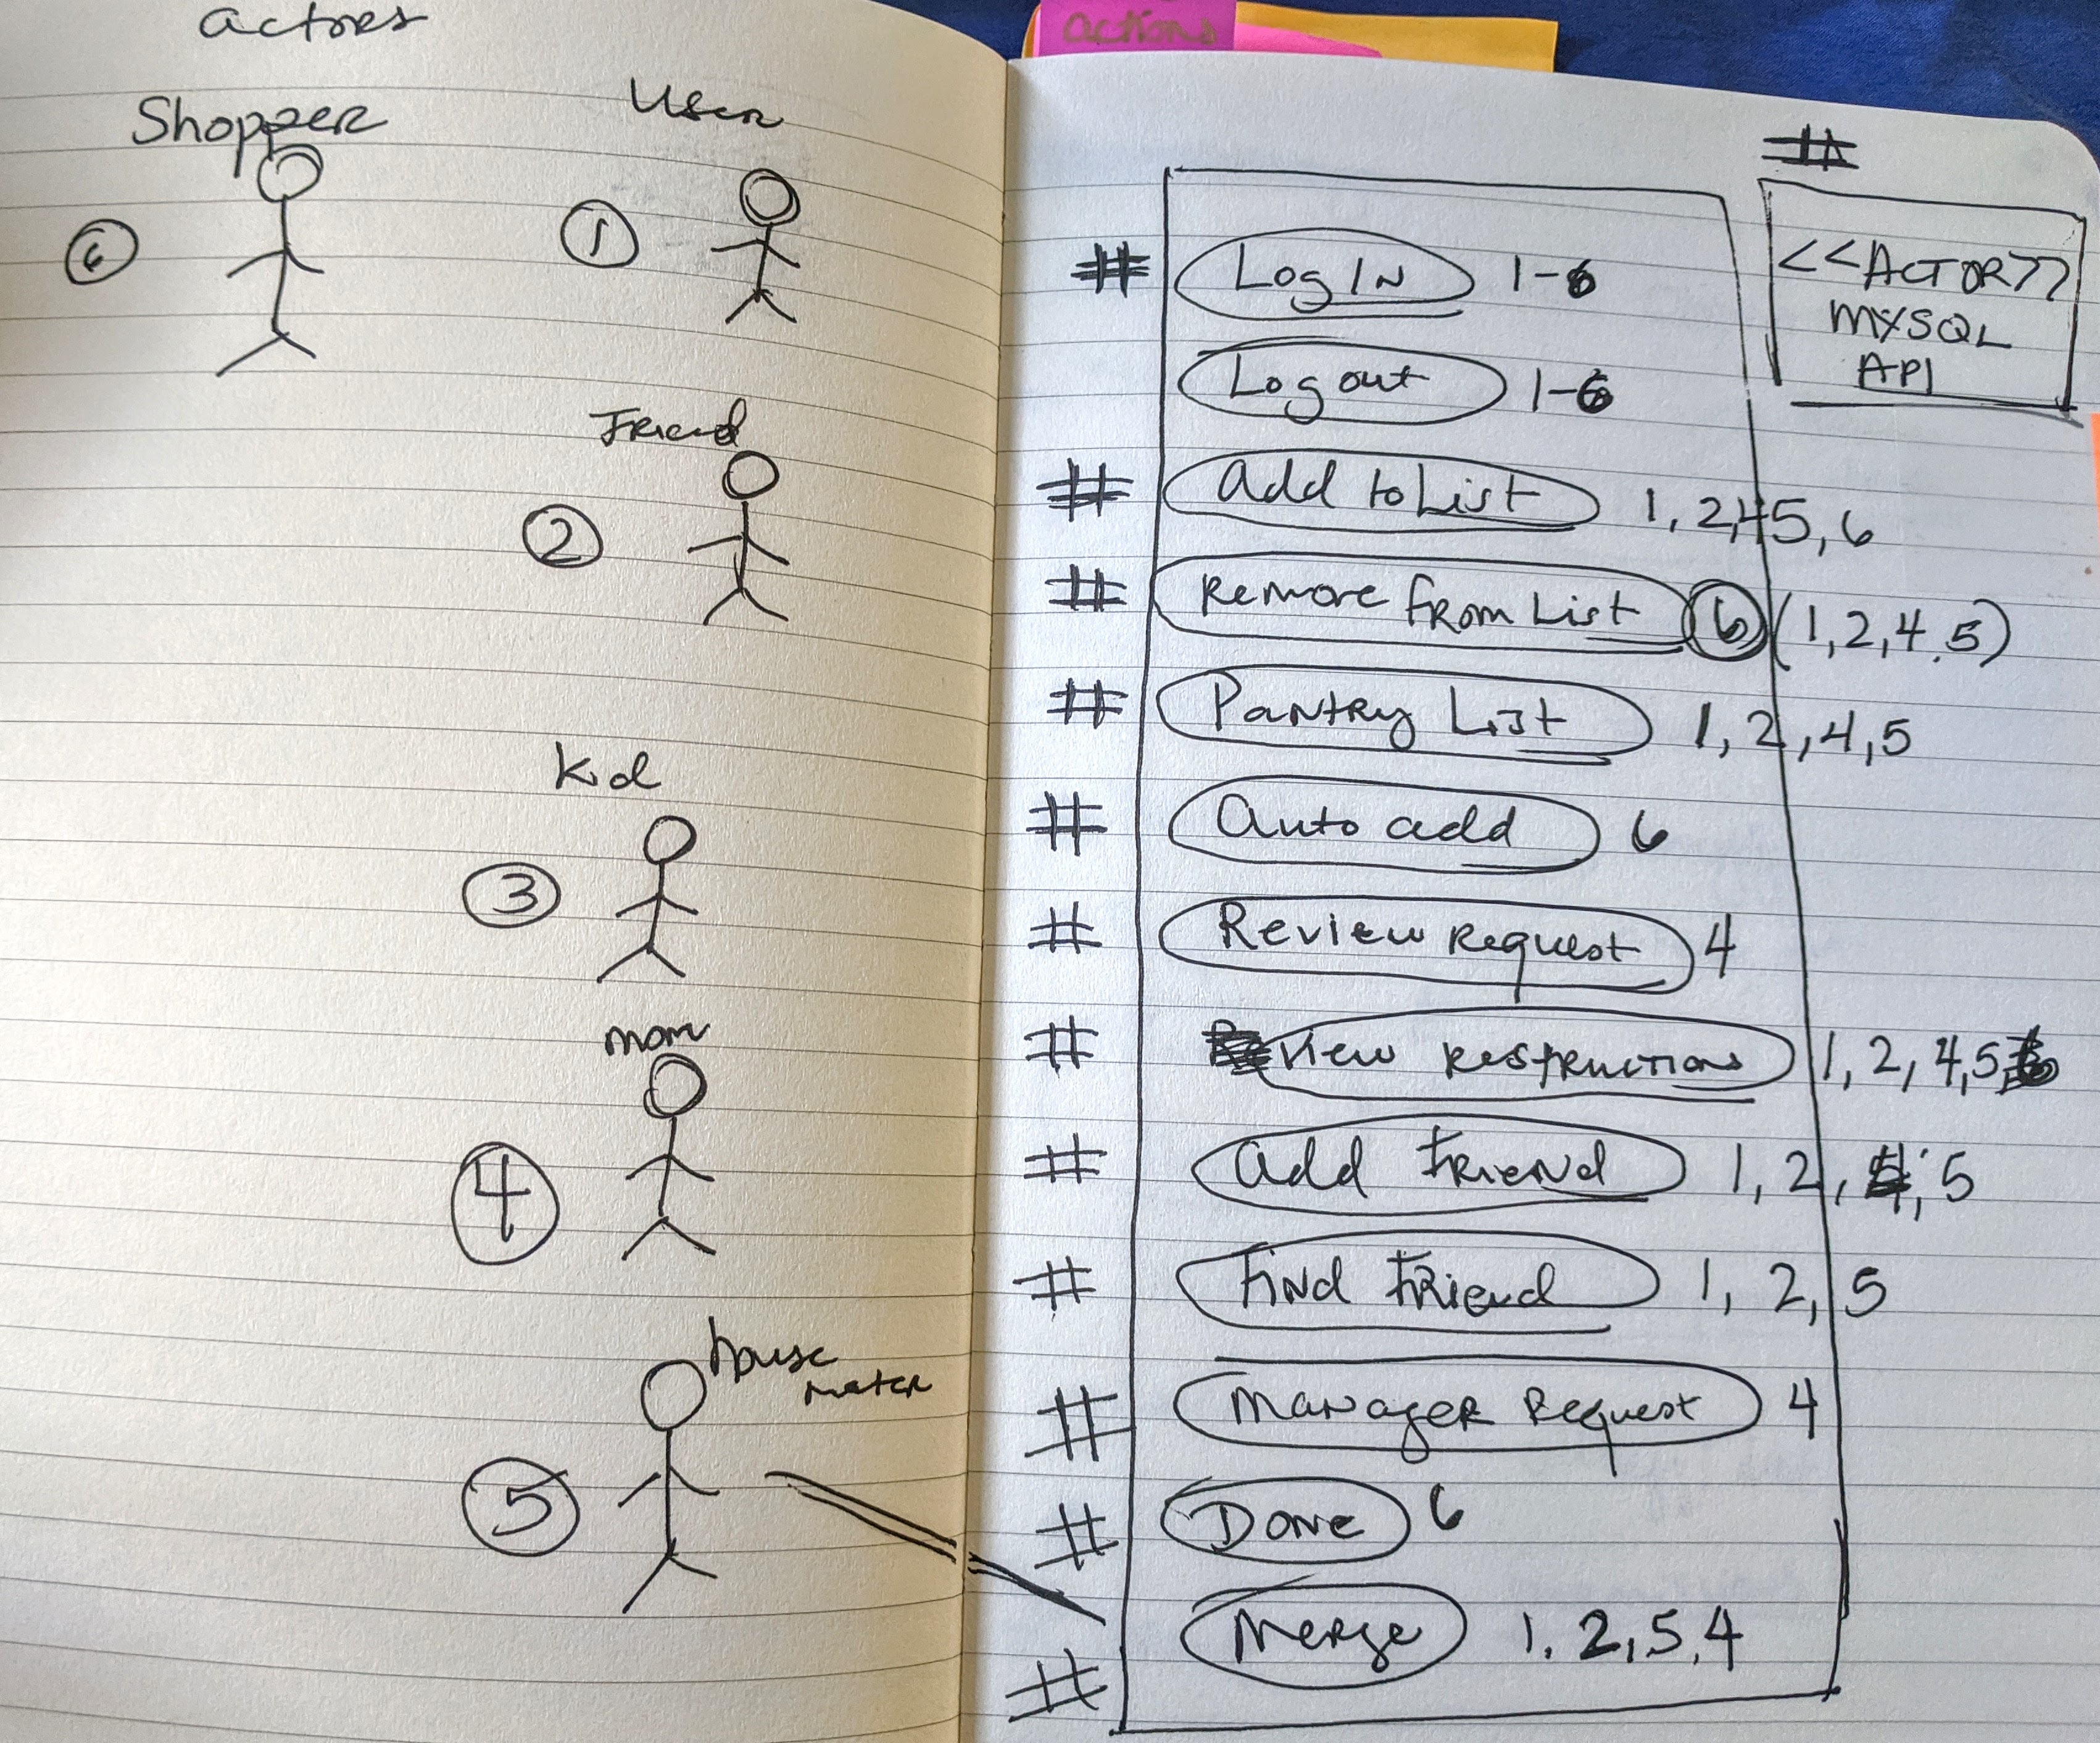 actors
Shopper
6
User
1
Friend
2
Kid
3
mom
4
house
mater
5
actions
#
<<ACTOR>>
MYSQL
API
# Log IN 1-6
Log out 1-6
# add to List 1, 2, 4 5, 6
# Remove from List 6 (1, 2, 4, 5)
# Pantry List 1, 2, 4, 5
# auto add 6
# Review Request 4
# View Restrictions 1, 2, 4, 5
# add Friend 1, 2, 5
# Find Friend 1, 2, 5
# Manager Request 4
# Done 6
# Merge 1, 2, 5, 4